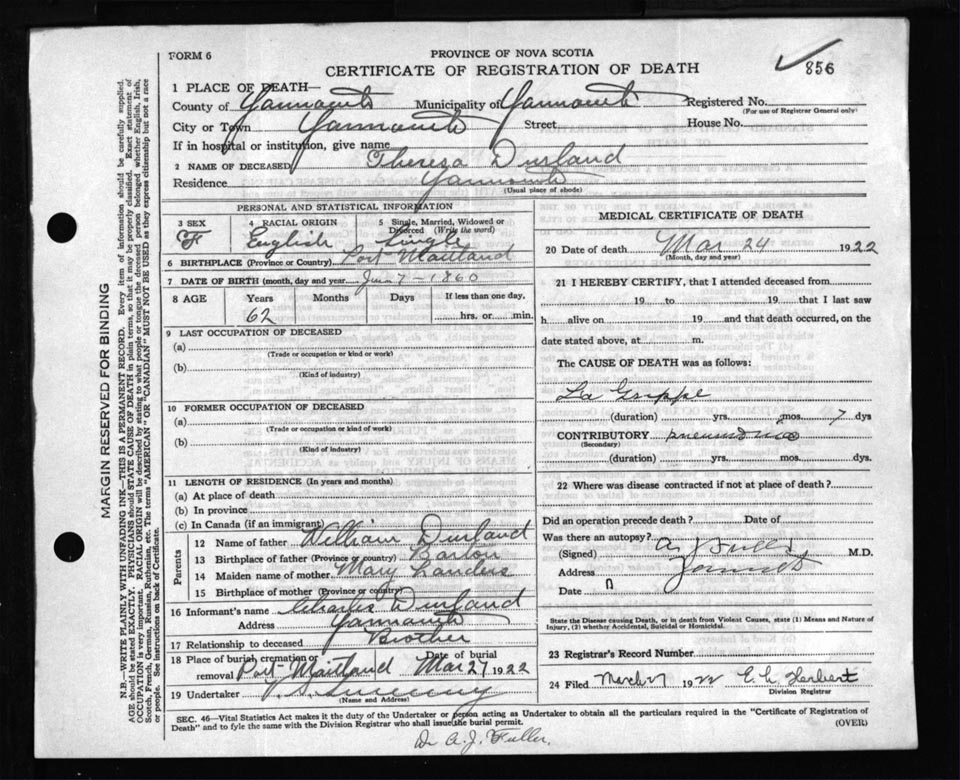 FORM 6
PROVINCE OF NOVA SCOTIA
CERTIFICATE OF REGISTRATION OF DEATH
856
1 PLACE OF DEATH—
County of Yarmouth Municipality of Yarmouth Registered No.
(For use of Registrar General only)
City or Town Yarmouth Street House No.
If in hospital or institution, give name
2 NAME OF DECEASED Theresa Durland
Residence Yarmouth
(Usual place of abode)
PERSONAL AND STATISTICAL INFORMATION
3 SEX 4 RACIAL ORIGIN 5 Single, Married, Widowed or Divorced (Write the word)
F English Single
6 BIRTHPLACE (Province or Country) Port Maitland
7 DATE OF BIRTH (month, day and year) 7 - 1860
8 AGE Years Months Days If less than one day,
62 hrs. or min.
9 LAST OCCUPATION OF DECEASED
(a)
(Trade or occupation or kind or work)
(b)
(Kind of industry)
10 FORMER OCCUPATION OF DECEASED
(a)
(Trade or occupation or kind or work)
(b)
(Kind of industry)
11 LENGTH OF RESIDENCE (In years and months)
(a) At place of death
(b) In province
(c) In Canada (if an immigrant)
Parents
12 Name of father William Durland
13 Birthplace of father (Province or country) Barton
14 Maiden name of mother Mary Landers
15 Birthplace of mother (Province or country)
16 Informant's name Charles Durland
Address Yarmouth
17 Relationship to deceased Brother
18 Place of burial, cremation or removal Port Maitland Date of burial Mar 27 1922
19 Undertaker V. S. Sweeny
(Name and Address)
MEDICAL CERTIFICATE OF DEATH
20 Date of death Mar 24 1922
(Month, day and year)
21 I HEREBY CERTIFY, that I attended deceased from
19 to 19 that I last saw
h alive on 19 and that death occurred, on the
date stated above, at m.
The CAUSE OF DEATH was as follows:
La Grippe
(duration) yrs. mos. 7 dys
CONTRIBUTORY pneumonia
(Secondary)
(duration) yrs. mos. dys
22 Where was disease contracted if not at place of death?
Did an operation precede death? Date of
Was there an autopsy?
(Signed) M.D.
Address Yarmouth
Date
State the Disease causing Death, or in death from Violent Causes, state (1) Means and Nature
of Injury, (2) whether Accidental, Suicidal or Homicidal.
23 Registrar's Record Number
24 Filed March 27 1922 Herbert
Division Registrar
SEC. 46—Vital Statistics Act makes it the duty of the Undertaker or person acting as Undertaker to obtain all the particulars required in the "Certificate of Registration of
Death" and to fyle the same with the Division Registrar who shall issue the burial permit.
(OVER)
Dr A. J. Fuller.
MARGIN RESERVED FOR BINDING
N.B.—WRITE PLAINLY WITH UNFADING INK—THIS IS A PERMANENT RECORD. Every item of information should be carefully supplied.
AGE should be stated EXACTLY. PHYSICIANS should STATE CAUSE OF DEATH in plain terms, so that it may be properly classified. Exact statement of
OCCUPATION is very important. RACIAL ORIGIN will be described by stating to what people or tongue the deceased person belonged whether English, Irish,
Scotch, French, German, Russian, Ruthenian, etc. The terms "AMERICAN" or "CANADIAN" MUST NOT BE USED as they express citizenship but not a race
or people. See instructions on back of Certificate.